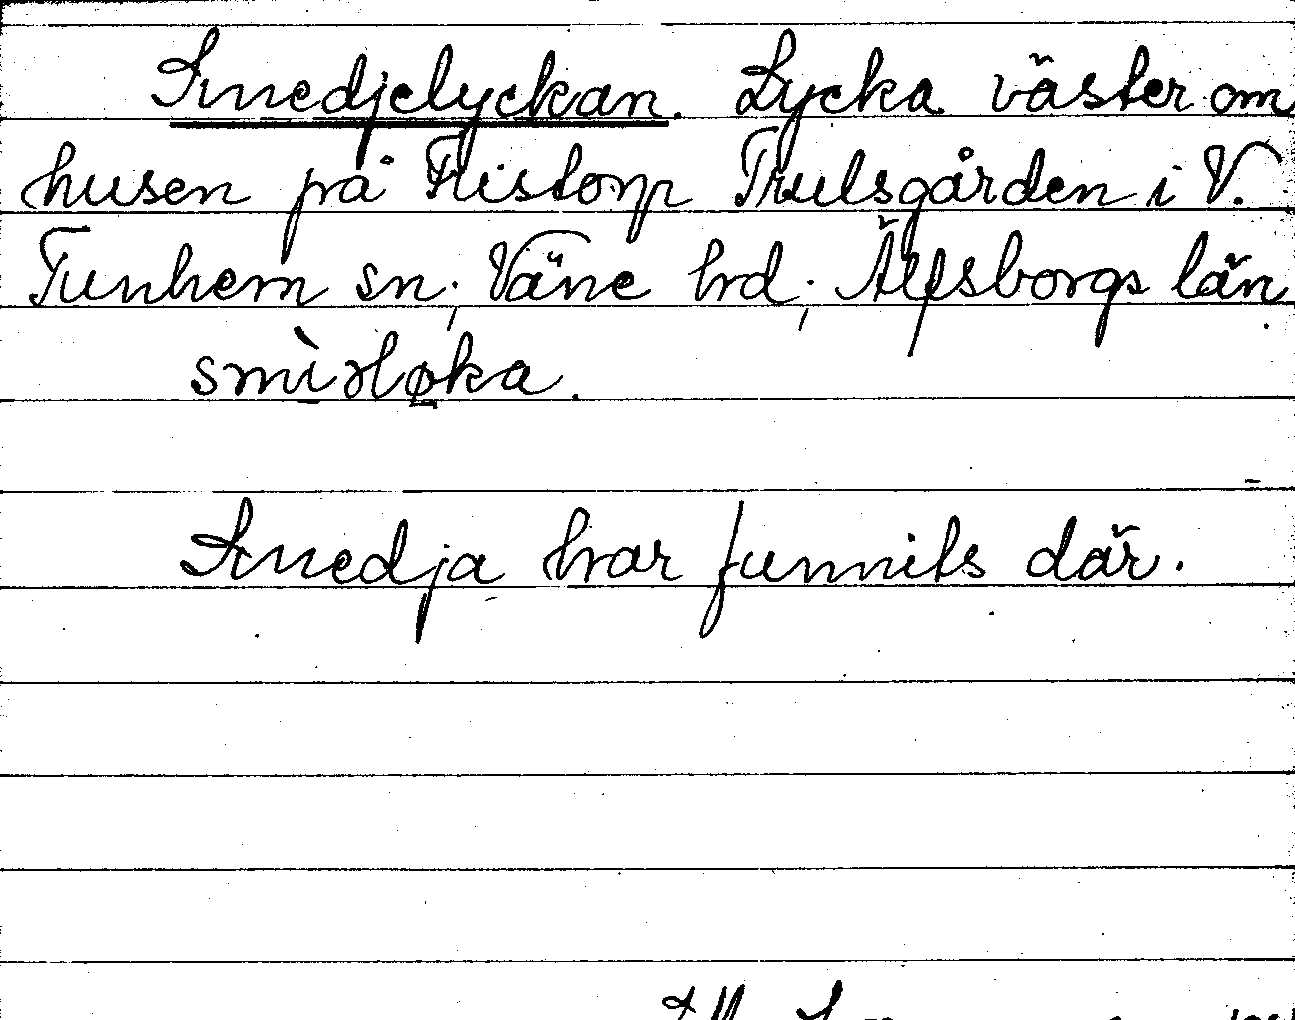 Smedjelyckan. Lycka väster om
husen på Flistorp Trulsgården i V.
Tunhem sn, Väne hrd, Älfsborgs län.
Smedja har funnits där.